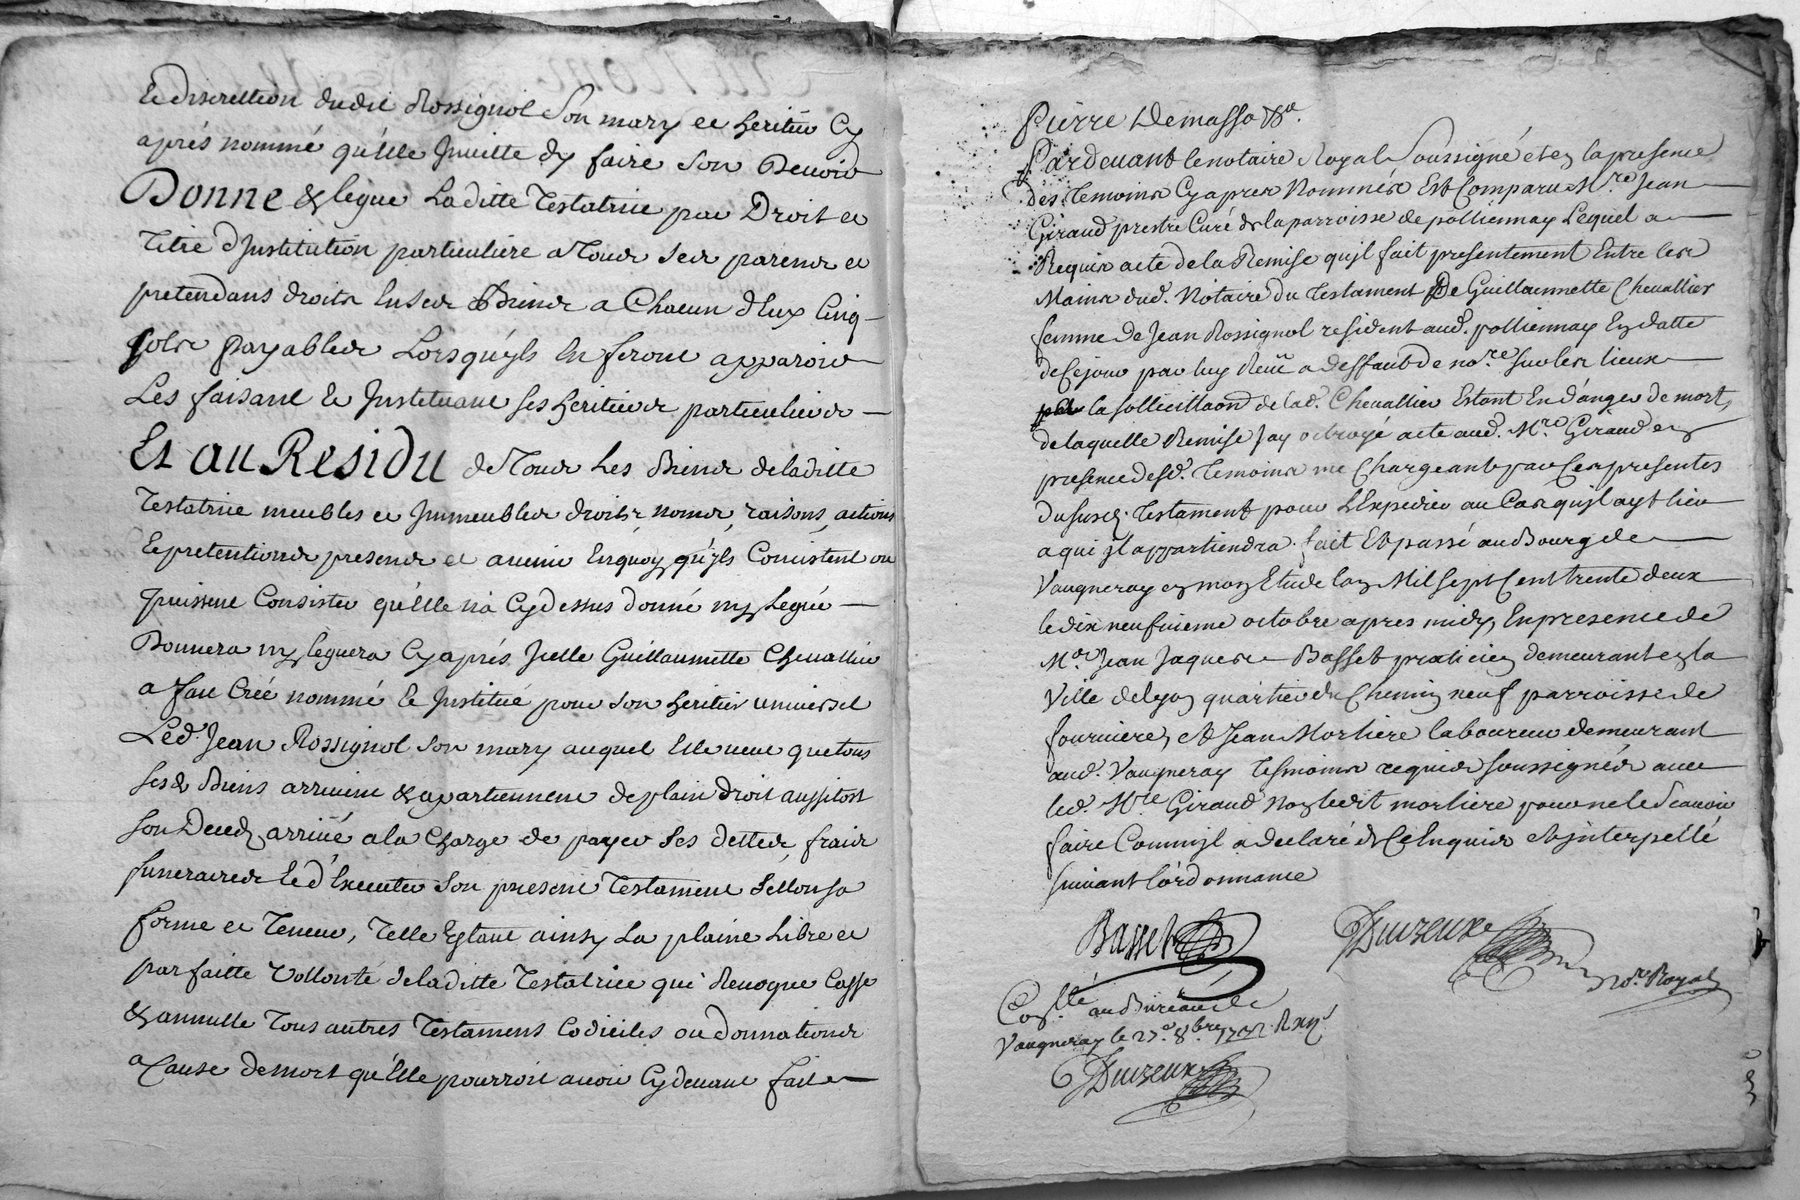 et discrettion dudit Rossignol son mary et heritier cy
aprés nommé qu'elle jnvitte dy faire son devoir
Donne & legue Laditte Testatrice par Droit et
titre d'Jnstitution particuliere a tous ses parens et
pretendans droits en ses Biens a Chacun d'eux Cinq
sols payables Lorsqu'jls en feront apparoir
Les faisant et Jnstituant ses heritiers particuliers
Et au Residu de tous Les Biens de laditte
Testatrice meubles et Jmmeubles droits noms, raisons, actions
et pretentions presens et avenir Enquoy qu'jls Concistent ou
puissent Consister qu'elle n'a Cydessus donné ny Legué
Donnera ny leguera Cyaprés Jcelle Guillaumette Chevallier
a fait Créé nommé et Jnstitué pour son heritier universel
Led. Jean Rossignol son mary auquel Elle veut que tous
sesd. Biens arrivent & apartiennent de plain droit aussitost
son Deceds arrivé a la charge de payer ses dettes, frais
funeraires et d'Executer son present Testament sellon sa
forme et Teneur, Telle Estant ainsy La plaine Libre et
parfaitte vollonté de laditte Testatrice qui Revoque Casse
& annulle tous autres Testamens Codiciles ou donnations
a Cause de mort qu'elle pourroit avoir Cydevant fait
Pierre Demasso
Pardevant le notaire Royal soussigné et en la presence
des temoins Cyapres Nommés Est Comparu M.re Jean
Giraud prestre Curé de la parroisse de polliennay Lequel a
Requis acte de la Remise qu'jl fait presentement Entre les
Mains dud. Notaire du Testament De Guillaumette Chevallier
femme de Jean Rossignol resident aud. polliennay En datte
de Cejour par luy Reçu a deffaut de no.re sur les lieux
la sollicittaon de lad. Chevallier Estant En d'anger de mort,
de laquelle Remise Jay octroyé acte aud. M.re Giraud en
presence desd. Temoins me Chargeant par Ces presentes
du susd. Testament pour L'Expedier au Cas qu'jl ayt lieu
a qui jl appartiendra. fait Et passé au Bourg de
Vaugneray en mon Etude lan Mil sept Cent trente deux
le dix neufvieme octobre apres midy, En presence de
M.e Jean Jaques Basset praticien demeurant en la
Ville de lyon quartier du Chemin neuf parroisse de
fourviere, et Jean Morliere laboureur demeurant
aud. Vaugneray Tesmoins requis soussignés avec
led. M.re Giraud non ledit morliere pour ne le Scavoir
faire Comm'jl a declaré de Ce Enquis et jnterpellé
suivant l'ordonnance
Basset Duizeux no.re Royal
Con.llé au Bureau de
Vaugneray le 27.e 8.bre 1732
Duizeux